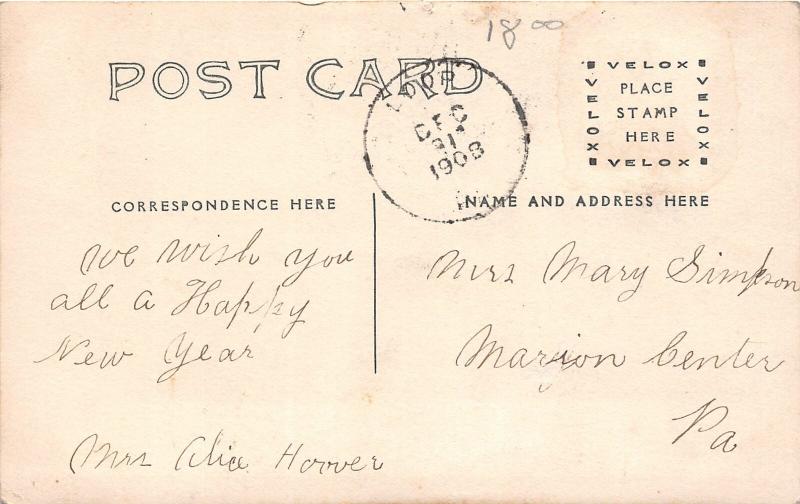 18 00
POST CARD
LOOP
DEC
31
1908
VELOX
VELOX
PLACE
STAMP
HERE
VELOX
VELOX
CORRESPONDENCE HERE
NAME AND ADDRESS HERE
we wish you
all a Happy
New Year
Mrs Alice Hoover
Mrs Mary Simpson
Marion Center
Pa